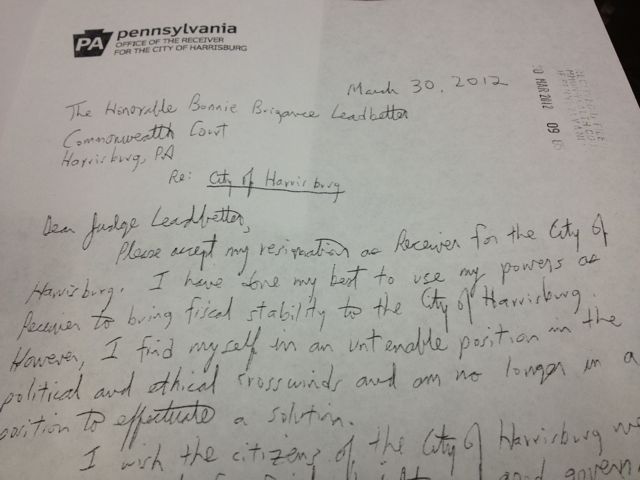 PA
pennsylvania
OFFICE OF THE RECEIVER
FOR THE CITY OF HARRISBURG
March 30, 2012
30 MAR 2012 09
The Honorable Bonnie Brigance Leadbetter
Commonwealth Court
Harrisburg, PA
Re: City of Harrisburg
Dear Judge Leadbetter,
Please accept my resignation as Receiver for the City of
Harrisburg. I have done my best to use my powers as
Receiver to bring fiscal stability to the City of Harrisburg.
However, I find myself in an untenable position in the
political and ethical crosswinds and am no longer in a
position to effectuate a solution.
I wish the citizens of the City of Harrisburg
good